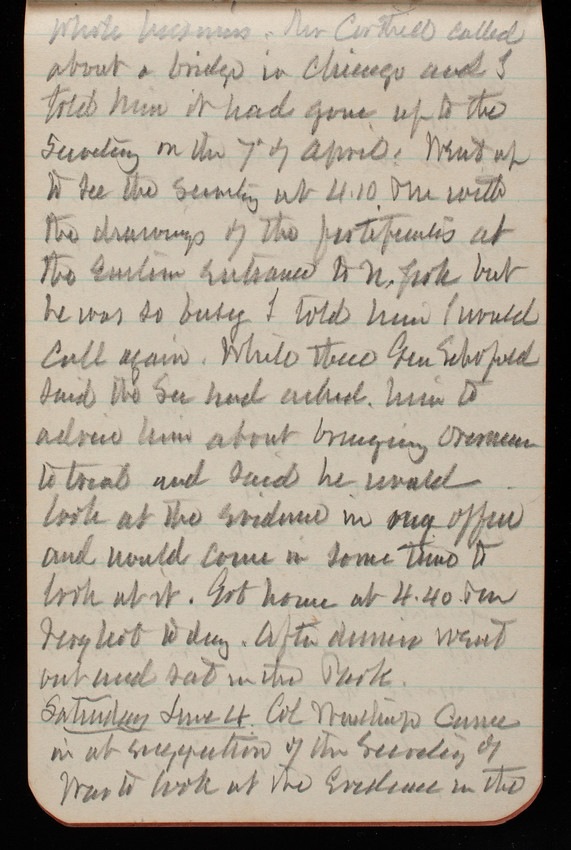 whole business. Mr Cothrell called
about a bridge in Chicago and I
told him it had gone up to the
Secretary on the 7th of April. Went up
to see the Secretary at 4.10 Pm with
the drawings of the fortifications at
the Eastern entrance to N. York but
he was so busy I told him I would
call again. While there Gen Schofield
said the Sec had asked him to
advise him about bringing Overman
to trial and said he would
look at the evidence in my office
and would come in some time to
look at it. Got home at 4.40 Pm
Very hot today. After dinner went
out and sat in the Park.
Saturday June 4. Col Winthrop came
in at suggestion of the Secretary of
War to look at the Evidence in the